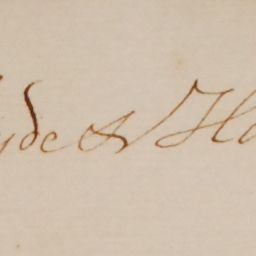 yde & Ho